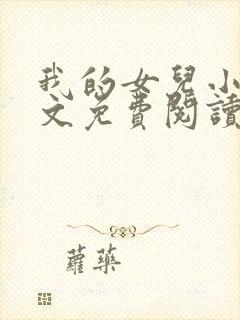 我的女兒小
文免費閱讀
蘿藥